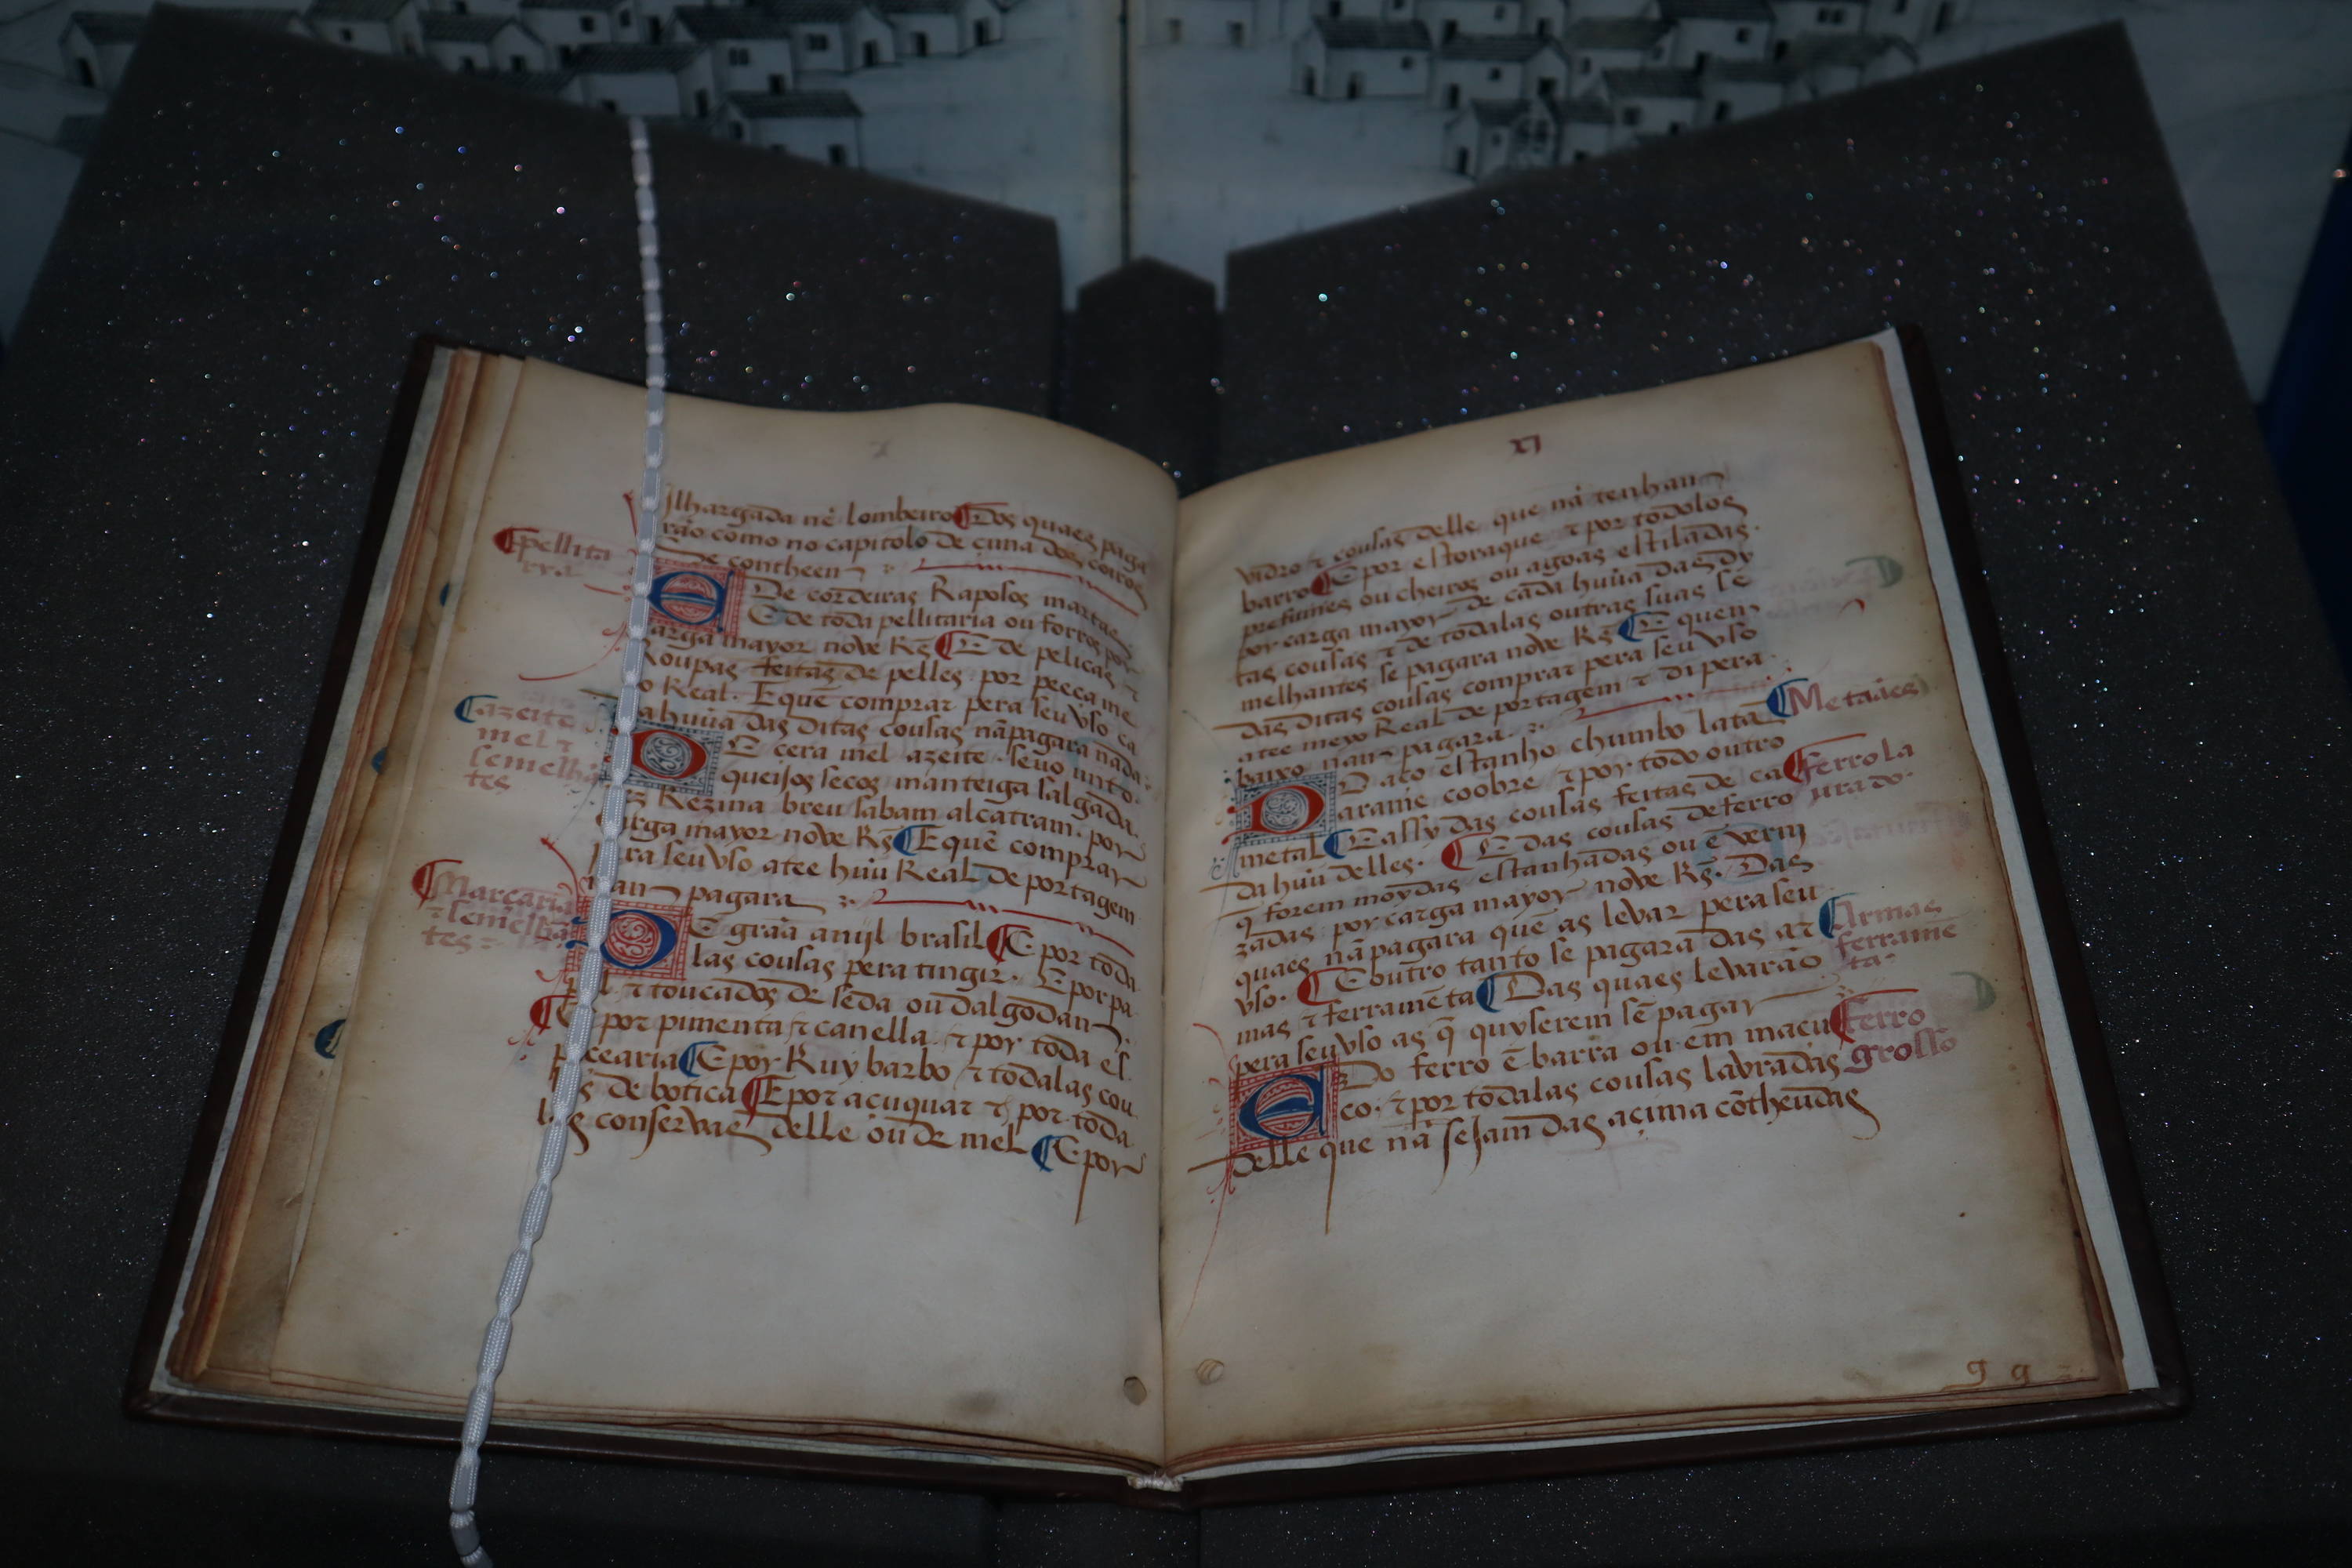 ilhargada nē lombeiro ¶ Dos quaes paga
rão como no capitolo de çima dos coiros
se contheem
¶ pellita
ria
E De cordeiras Raposos martaes
E de toda pellitaria ou forros por
carga mayor nove Rs̄ ¶ E de pelicas ⁊
Roupas feitas de pelles por peça me
o Real. E quē comprar pera seu vso ca
da huūa das ditas cousas nā pagara nada.
¶ azeite
mel ⁊
semelhā
tes
D E cera mel azeite sevo unto.
queijos secos manteiga salgada.
pez Rezina breu sabam alcatram. por
carga mayor nove Rs̄ ¶ E quē comprar
pera seu vso atee huū Real de portagem
nan pagara
¶ Marçaria
⁊ semelhā
tes
D E graā anijl brasil ¶ E por toda
las cousas pera tingir. E por pa
pel ⁊ toucados de seda ou dalgodan
¶ E por pimenta ⁊ canella ⁊ por toda es
peçearia ¶ E por Ruy barbo ⁊ todalas cou
sas de botica ¶ E por açuquar ⁊ por toda
las conservas delle ou de mel ¶ E por
xj
vidro ⁊ cousas delle que nā tenham
barro ¶ E por estoraque ⁊ por todolos
perfumes ou cheiros ou agoas estiladas.
por carga mayor de cada huūa das dy
tas cousas ⁊ de todalas outras suas se
melhantes se pagara nove Rs̄ ¶ E quem
das ditas cousas comprar pera seu vso
atee meyo Real de portagem ⁊ di pera
baixo nam pagara.
¶ Metaães
D O aço estanho chumbo latā
arame coobre ⁊ por todo outro
metal ¶ E assy das cousas feitas de ca
da huū delles. ¶ E das cousas de ferro
¶ ferro la
urado.
q̄ forem moydas estanhadas ou ē verni
zadas por carga mayor nove Rs̄. Das
quaes nā pagara quē as levar pera seu
vso. ¶ E outro tanto se pagara das ar
¶ Armas
ferramē
ta.
mas ⁊ ferramēta ¶ Das quaes levarão
pera seu vso as q̄ quyserem sē pagar
E Do ferro ē barra ou em maçu
¶ ferro
grosso
co. ⁊ por todalas cousas lavradas
delle que nā sejam das açima cōtheudas
g g